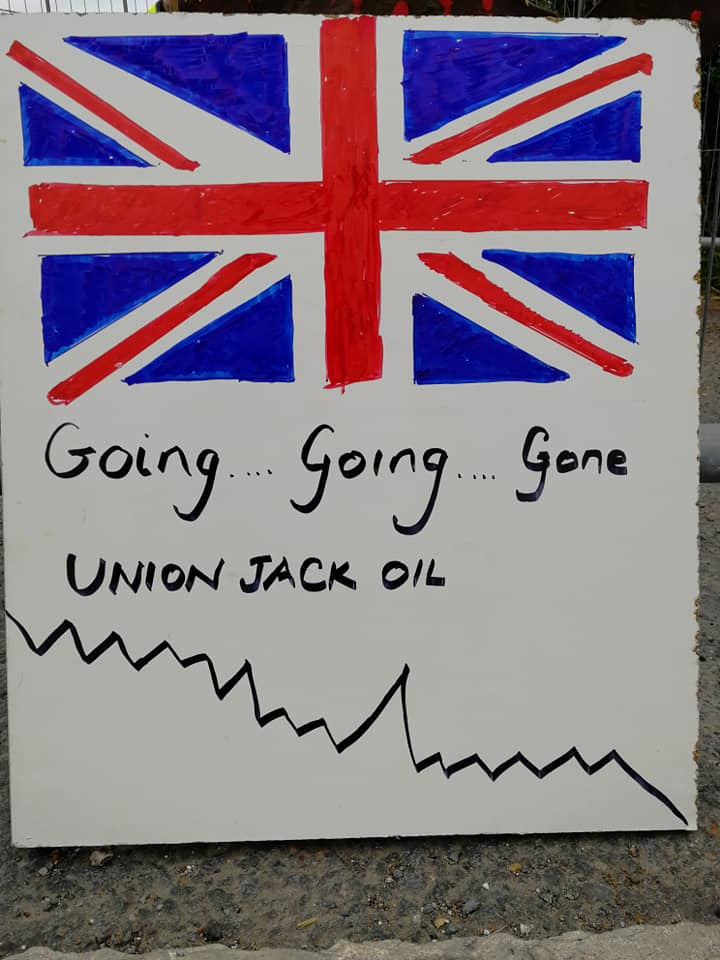 Going.... Going.... Gone
UNION JACK OIL